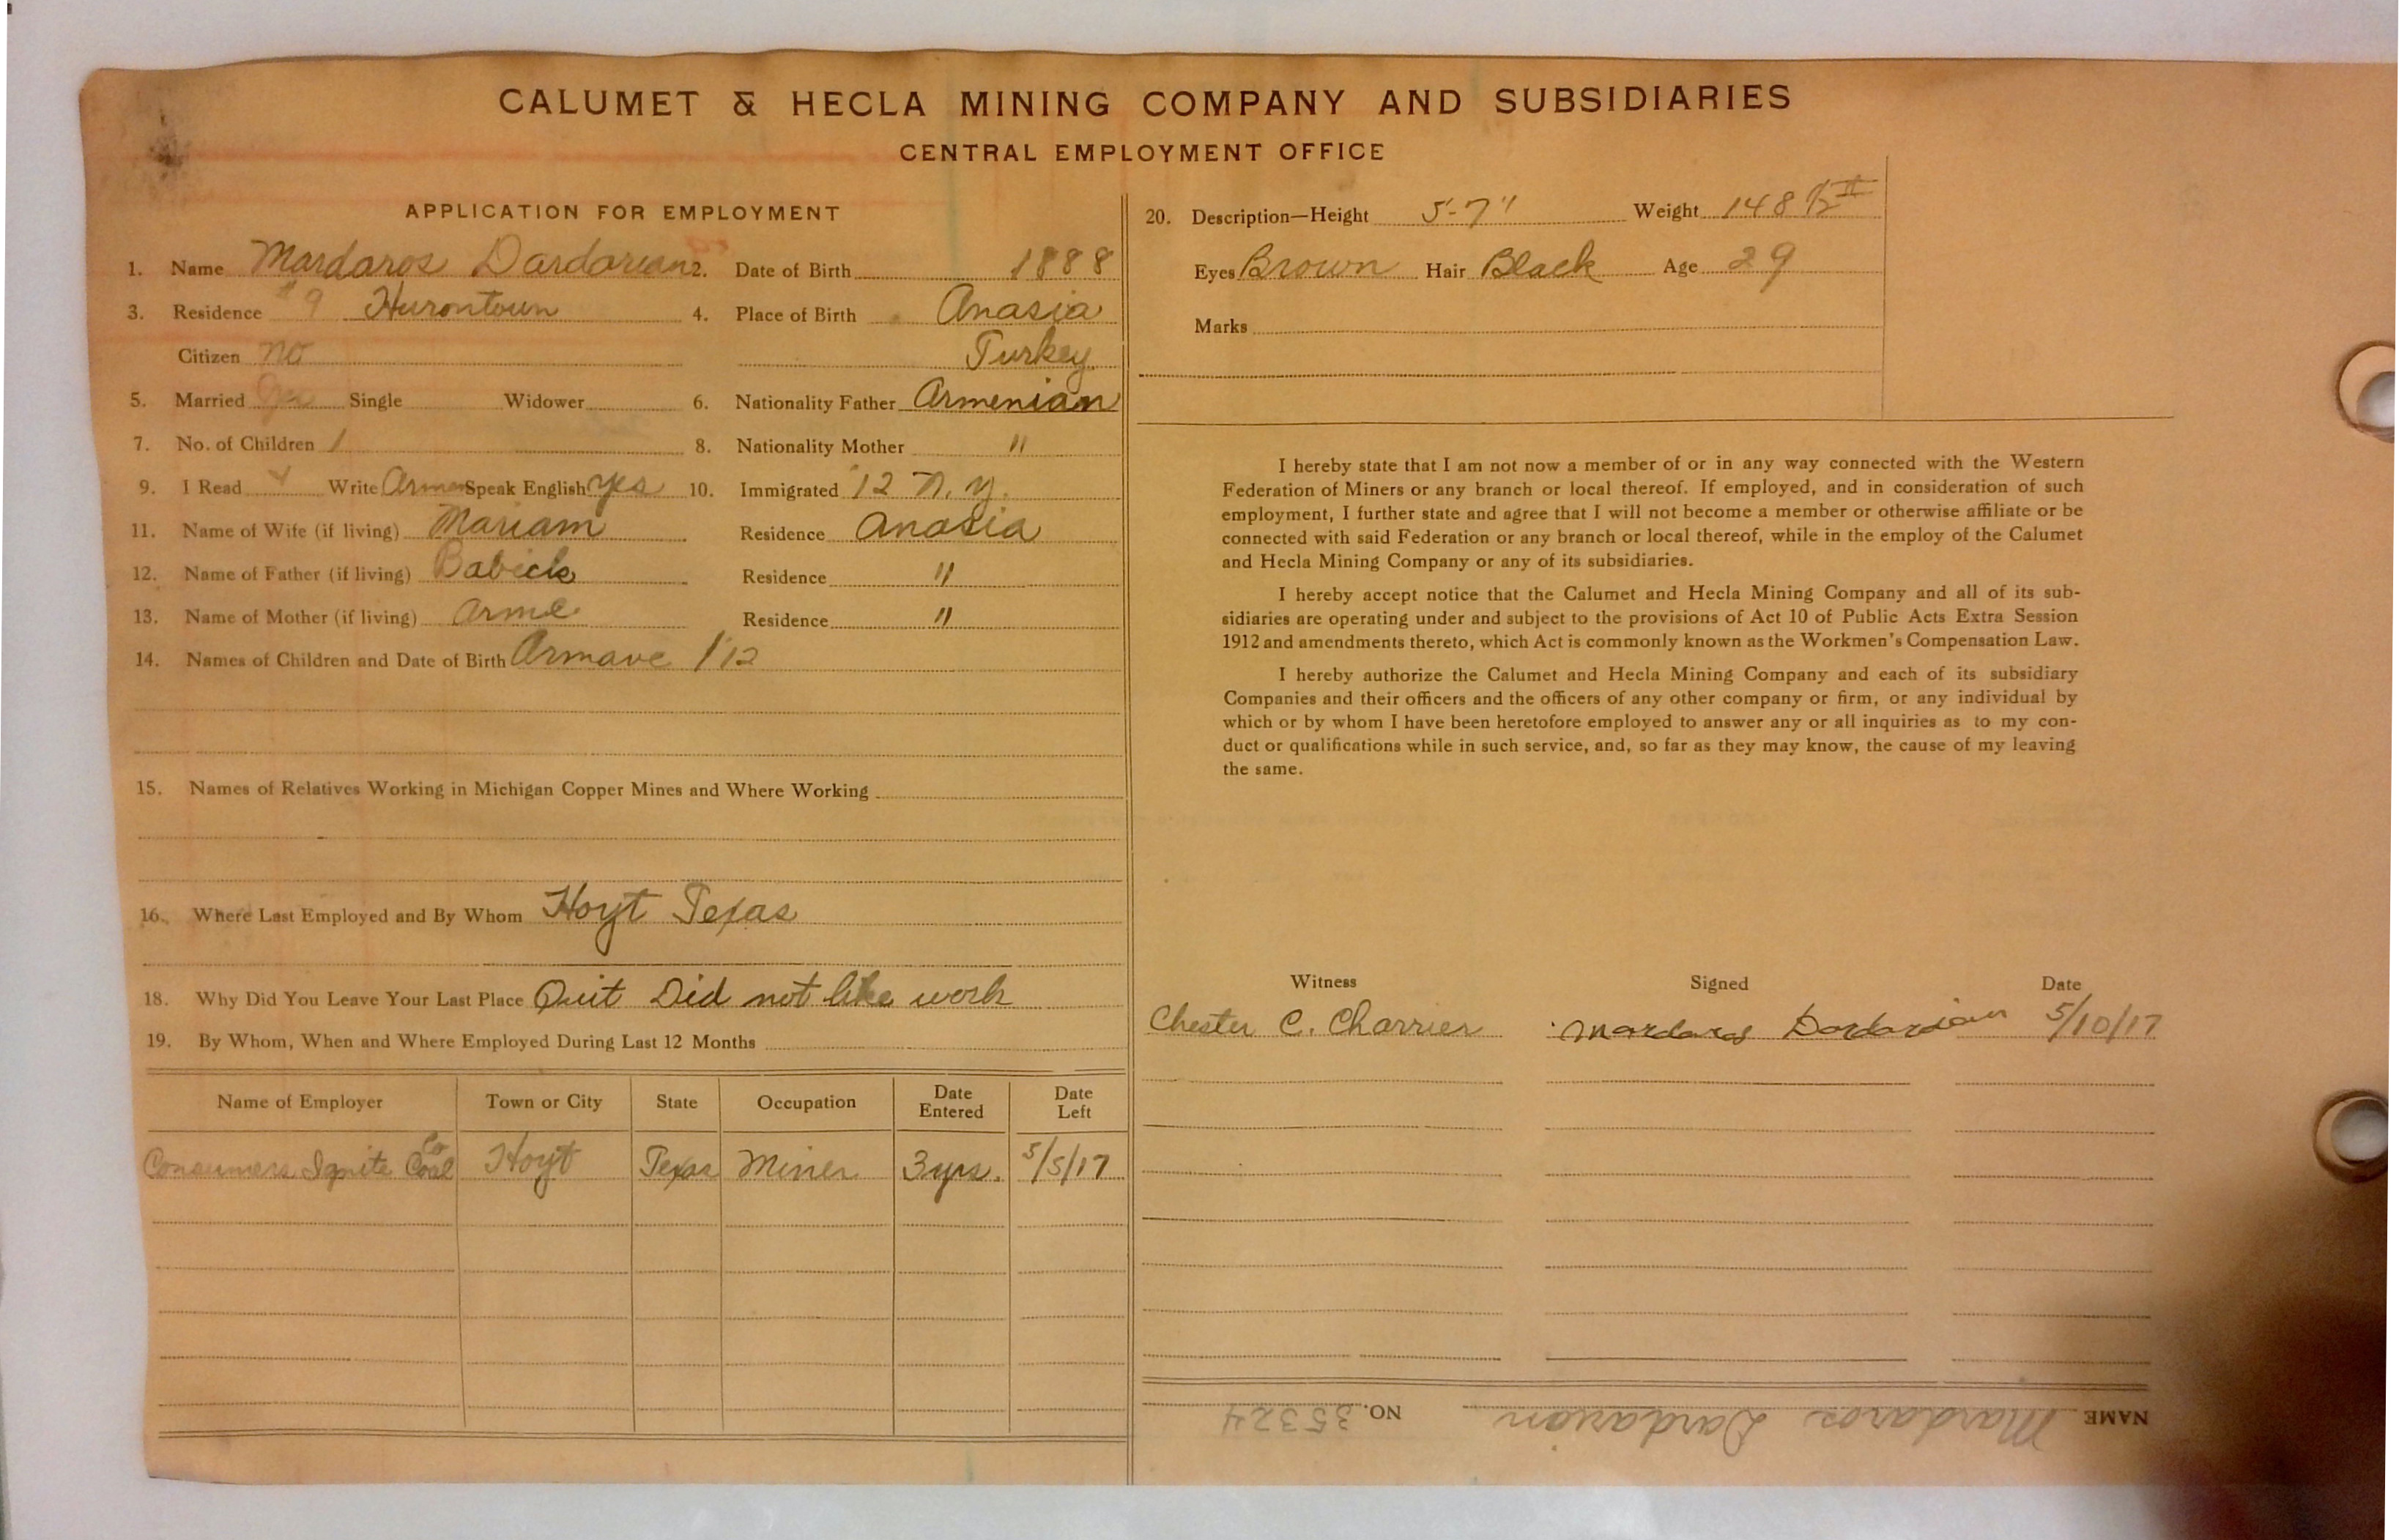 CALUMET & HECLA MINING COMPANY AND SUBSIDIARIES
CENTRAL EMPLOYMENT OFFICE
APPLICATION FOR EMPLOYMENT
1. Name Mardaros Dardarian 2. Date of Birth 1888
3. Residence #9 Hurontown 4. Place of Birth Anasia
Citizen no Turkey
5. Married Yes Single Widower 6. Nationality Father Armenian
7. No. of Children 1 8. Nationality Mother "
9. I Read Write Armen Speak English yes 10. Immigrated '12 N. Y.
11. Name of Wife (if living) Mariam Residence Anasia
12. Name of Father (if living) Babick Residence "
13. Name of Mother (if living) Arme Residence "
14. Names of Children and Date of Birth Armave
15. Names of Relatives Working in Michigan Copper Mines and Where Working
16. Where Last Employed and By Whom Hoyt Texas
18. Why Did You Leave Your Last Place Quit Did not like work
19. By Whom, When and Where Employed During Last 12 Months
Name of Employer Town or City State Occupation Date Entered Date Left
Consumers Ignite Coal Co Hoyt Texas Miner 3 yrs. 5/5/17
20. Description—Height 5'-7" Weight 148
Eyes Brown Hair Black Age 29
Marks
I hereby state that I am not now a member of or in any way connected with the Western
Federation of Miners or any branch or local thereof. If employed, and in consideration of such
employment, I further state and agree that I will not become a member or otherwise affiliate or be
connected with said Federation or any branch or local thereof, while in the employ of the Calumet
and Hecla Mining Company or any of its subsidiaries.
I hereby accept notice that the Calumet and Hecla Mining Company and all of its sub-
sidiaries are operating under and subject to the provisions of Act 10 of Public Acts Extra Session
1912 and amendments thereto, which Act is commonly known as the Workmen's Compensation Law.
I hereby authorize the Calumet and Hecla Mining Company and each of its subsidiary
Companies and their officers and the officers of any other company or firm, or any individual by
which or by whom I have been heretofore employed to answer any or all inquiries as to my con-
duct or qualifications while in such service, and, so far as they may know, the cause of my leaving
the same.
Witness Signed Date
Chester C. Charrier Mardaros Dardarian 5/10/17
NAME Mardaros Dardarian NO. 35324